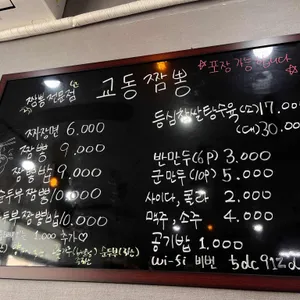 짬뽕전문점
교동짬뽕
☆포장 가능합니다☆
짜장면 6.000
짬뽕 9.000
짬뽕밥 9.000
순두부짬뽕 10.000
순두부짬뽕밥 10.000
1.000 추가♡
등심찹쌀탕수육 (소) 17.000
(대) 30.000
반만두(6P) 3.000
군만두(10P) 5.000
사이다, 콜라 2.000
맥주, 소주 4.000
공기밥 1.000
wi-fi 비번